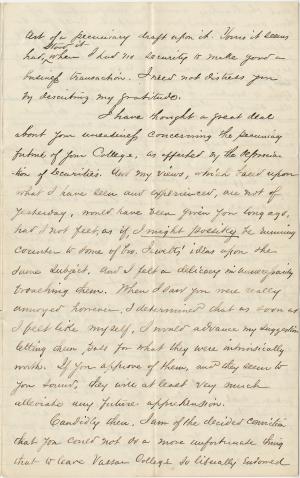 act of a pecuniary draft upon it. Yours it seems
stood it
had, when I had no security to make good a
business transaction. I need not distress you
by describing my gratitude.
I have thought a great deal
about your uneasiness concerning the pecuniary
future of your College, as affected by the deprecia-
tion of securities. And my views, which based upon
what I have seen and experienced, are not of
yesterday, would have been given you long ago,
had I not felt, as if I might possibly be running
counter to some of Mr. ideas upon the
same subject, and I felt a delicacy in unnecessarily
broaching them. When I saw you were really
annoyed however, I determined that as soon as
I felt like myself, I would advance my suggestions
letting them pass for what they were intrinsically
worth. If you approve of them, and they seem to
you sound, they will at least very much
alleviate any future apprehension.
Candidly then, I am of the decided conviction
that you could not do a more unfortunate thing
than to leave Vassar College so liberally endowed